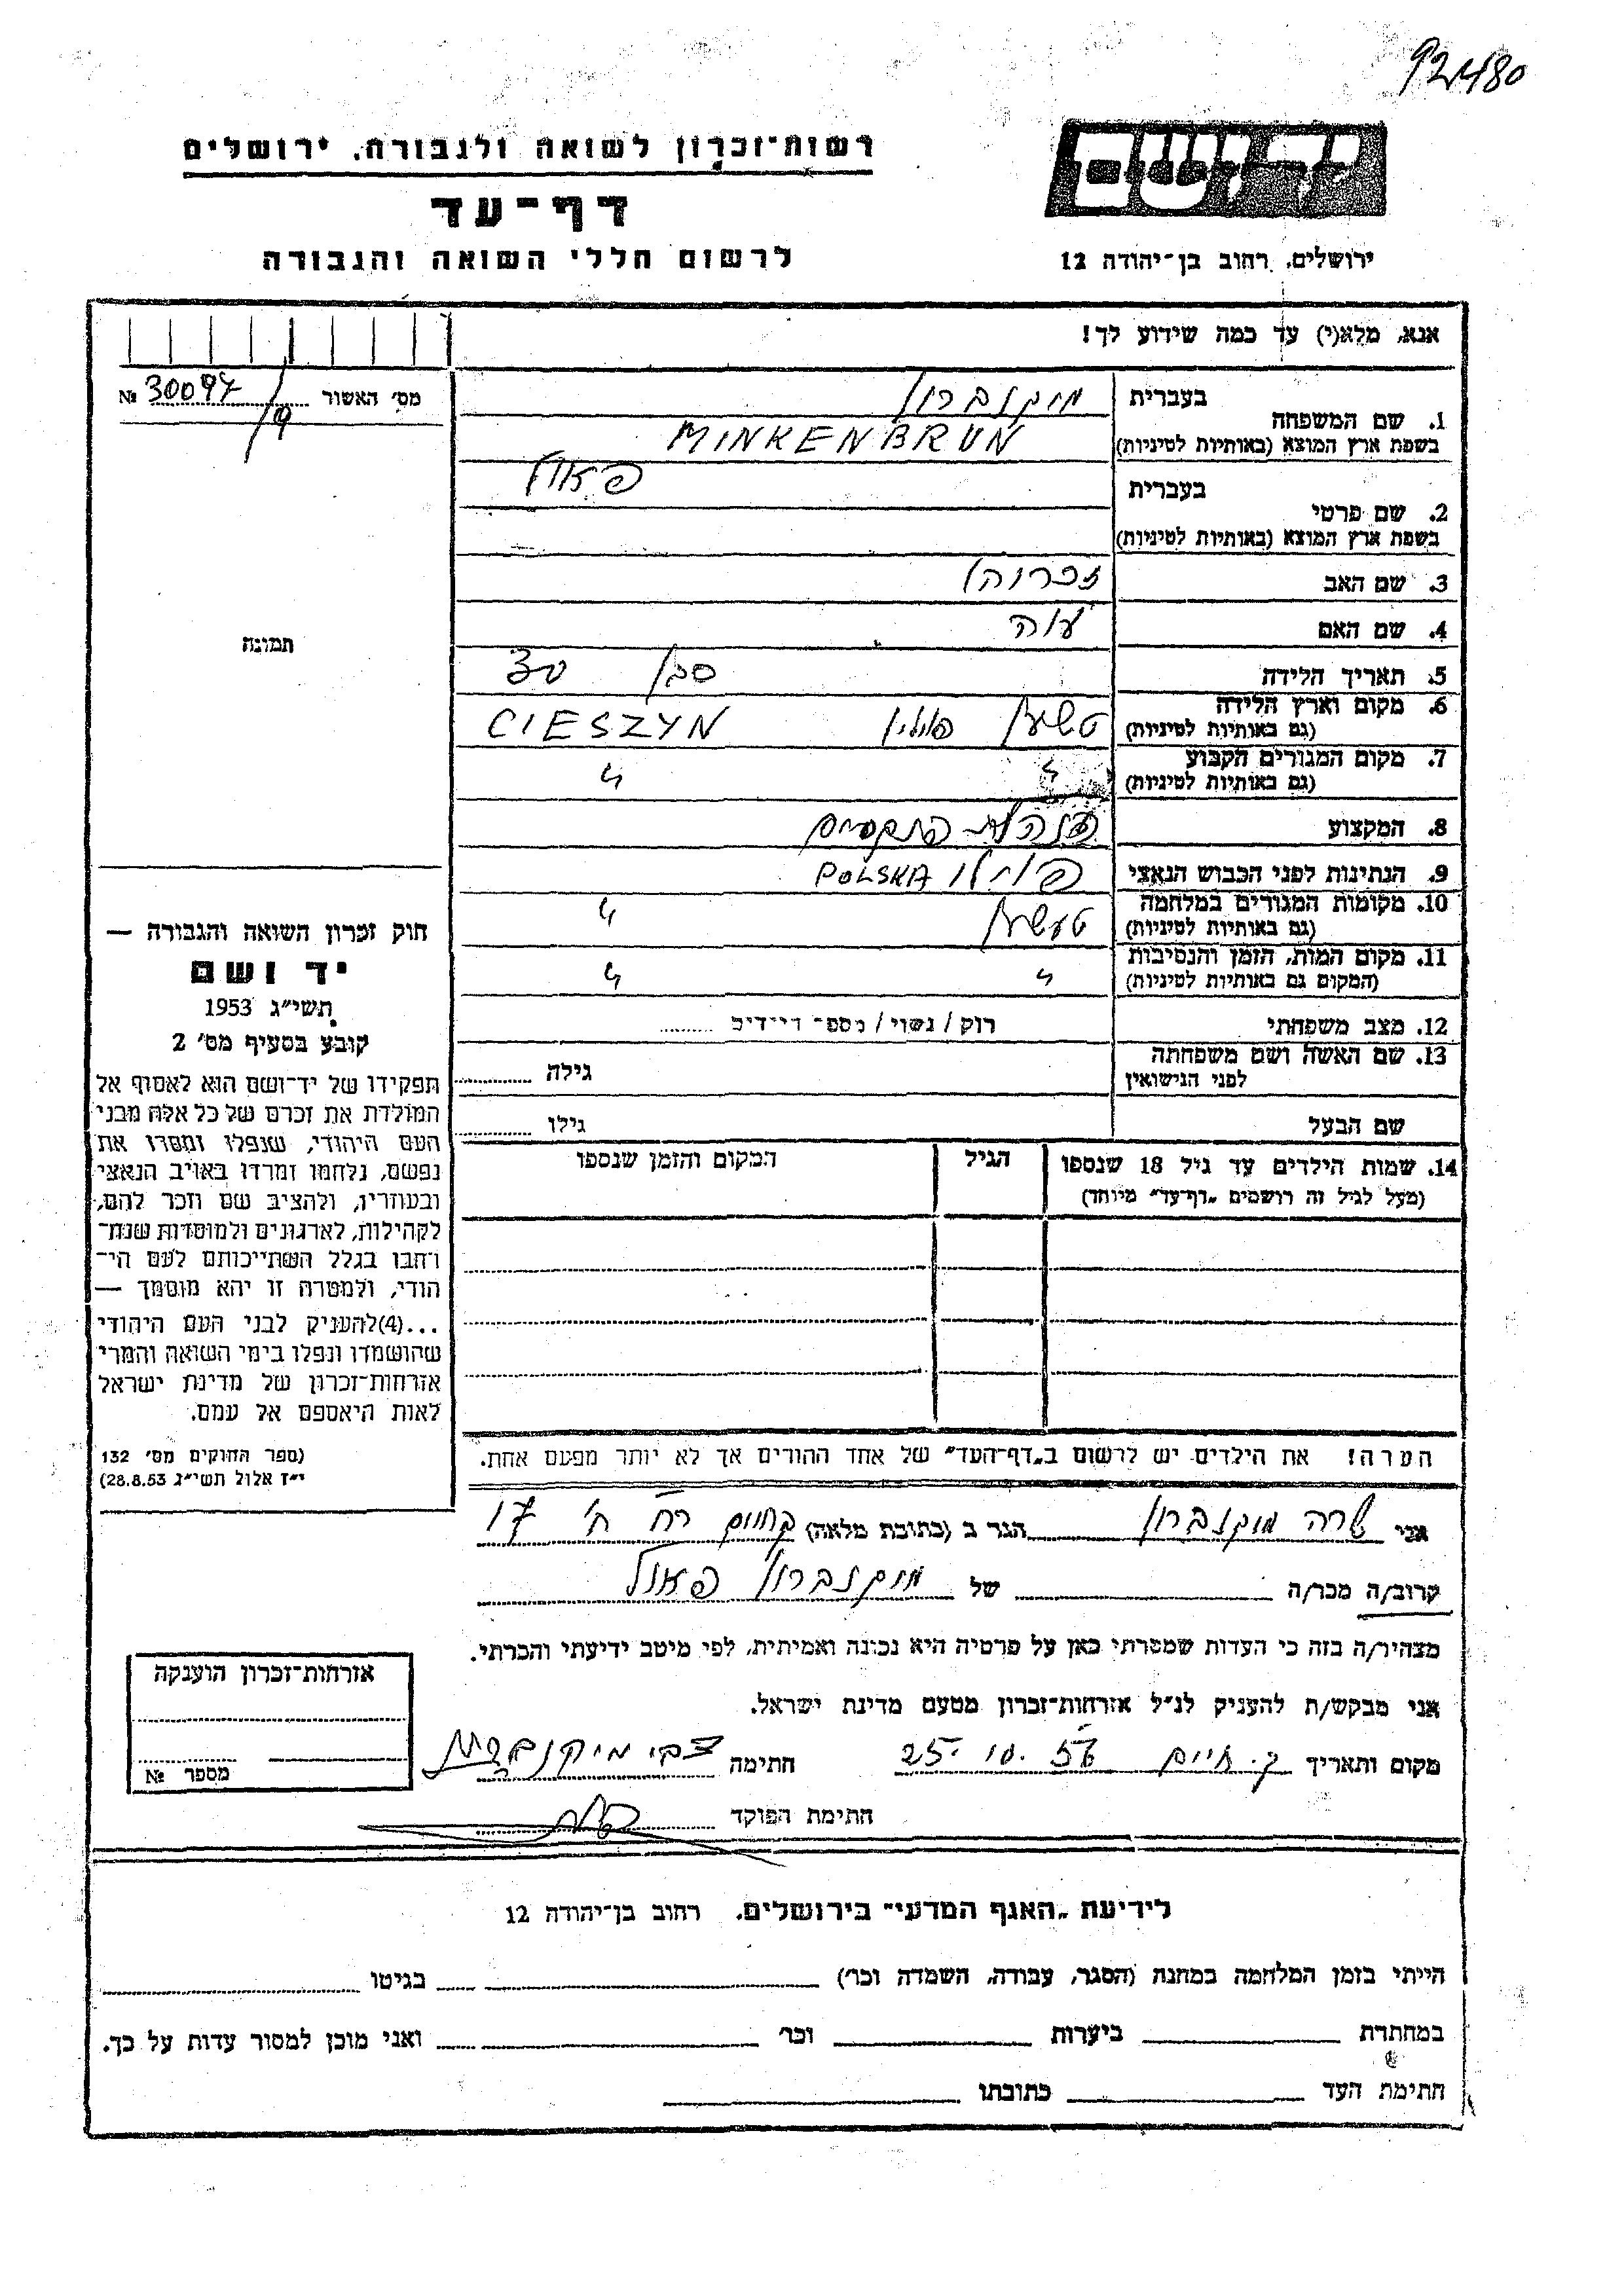 92480
רשות־זכרון לשואה ולגבורה, ירושלים
דף־עד
לרשום חללי השואה והגבורה
יד ושם
ירושלים, רחוב בן־יהודה 12
אנא, מלא(י) עד כמה שידוע לך!
מס׳ האשור № 30097/9
1. שם המשפחה
בעברית
מינקנברון
בשפת ארץ המוצא (באותיות לטיניות)
MINKENBRUN
2. שם פרטי
בעברית
פאול
בשפת ארץ המוצא (באותיות לטיניות)
3. שם האב
4. שם האם
5. תאריך הלידה
30
6. מקום וארץ הלידה
(גם באותיות לטיניות)
טשען פולין CIESZYN
7. מקום המגורים הקבוע
(גם באותיות לטיניות)
〃 〃
8. המקצוע
9. הנתינות לפני הכבוש הנאצי
POLSKA
10. מקומות המגורים במלחמה
(גם באותיות לטיניות)
טעשען 〃
11. מקום המות, הזמן והנסיבות
(המקום גם באותיות לטיניות)
〃 〃
12. מצב משפחתי
רוק / נשוי / מספר הילדים
13. שם האשה ושם משפחתה
לפני הנישואין
גילה
שם הבעל
גילו
14. שמות הילדים עד גיל 18 שנספו
(מעל לגיל זה רושמים „דף־עד״ מיוחד)
הגיל
המקום והזמן שנספו
הערה! את הילדים יש לרשום ב„דף־העד״ של אחד ההורים אך לא יותר מפעם אחת.
תמונה
חוק זכרון השואה והגבורה —
יד ושם
תשי״ג 1953
קובע בסעיף מס׳ 2
תפקידו של יד־ושם הוא לאסוף אל
המולדת את זכרם של כל אלה מבני
העם היהודי, שנפלו ומסרו את
נפשם, נלחמו ומרדו באויב הנאצי
ובעוזריו, ולהציב שם וזכר להם,
לקהילות, לארגונים ולמוסדות שנח־
רבו בגלל השתייכותם לעם הי־
הודי, ולמטרה זו יהא מוסמך —
...(4)להעניק לבני העם היהודי
שהושמדו ונפלו בימי השואה והמרי
אזרחות־זכרון של מדינת ישראל
לאות היאספם אל עמם.
(ספר החוקים מס׳ 132
י״ז אלול תשי״ג 28.8.53)
אני שרה מינקנברון הגר ב (כתובת מלאה) ק חיים רח ח׳ 17
קרוב/ה מכר/ה של מינקנברון פאול
מצהיר/ה בזה כי העדות שמסרתי כאן על פרטיה היא נכונה ואמיתית, לפי מיטב ידיעתי והכרתי.
אני מבקש/ת להעניק לנ״ל אזרחות־זכרון מטעם מדינת ישראל.
מקום ותאריך ק. חיים 25.10.56 חתימה
חתימת הפוקד
אזרחות־זכרון הוענקה
מספר №
לידיעת „האגף המדעי״ בירושלים, רחוב בן־יהודה 12
הייתי בזמן המלחמה במחנה (הסגר, עבודה, השמדה וכו׳) בגיטו
במחתרת ביערות וכו׳ ואני מוכן למסור עדות על כך.
חתימת העד כתובתו